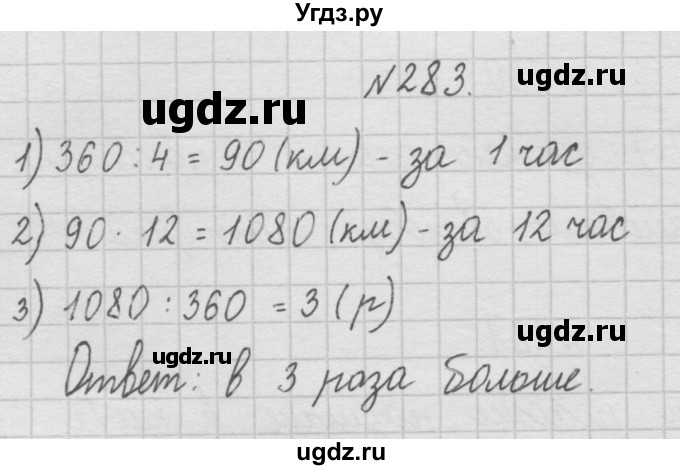 Угдз.ру
№283.
ugdz.ru
ugdz.ru
1) 360 : 4 = 90 (км) - за 1 час
2) 90 · 12 = 1080 (км) - за 12 час
3) 1080 : 360 = 3 (р)
ugdz.ru
ugdz.ru
Ответ: в 3 раза больше.
ugdz.ru